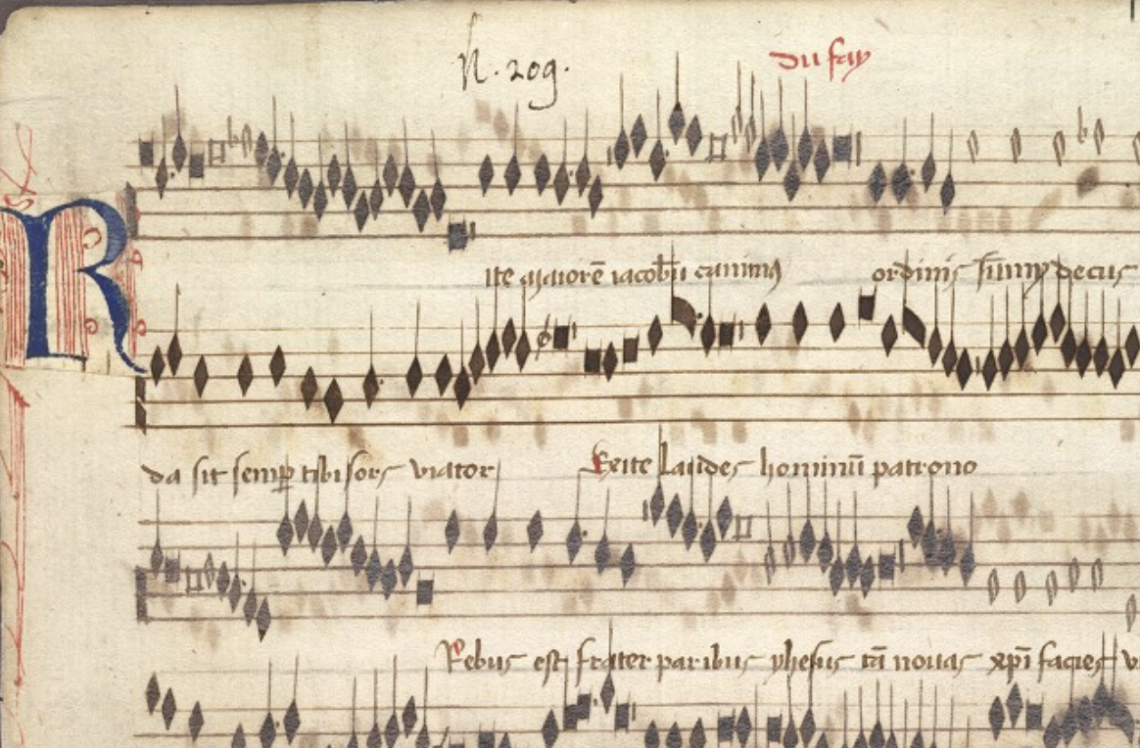 N. 209.
du fay
R
ite maiorē iacobū canimus ordinis sūmū decus
da sit semp tibi sors viator Leite laudes hominū patrono
Rebus est frater paribus ihesus tā nouas xpī facies